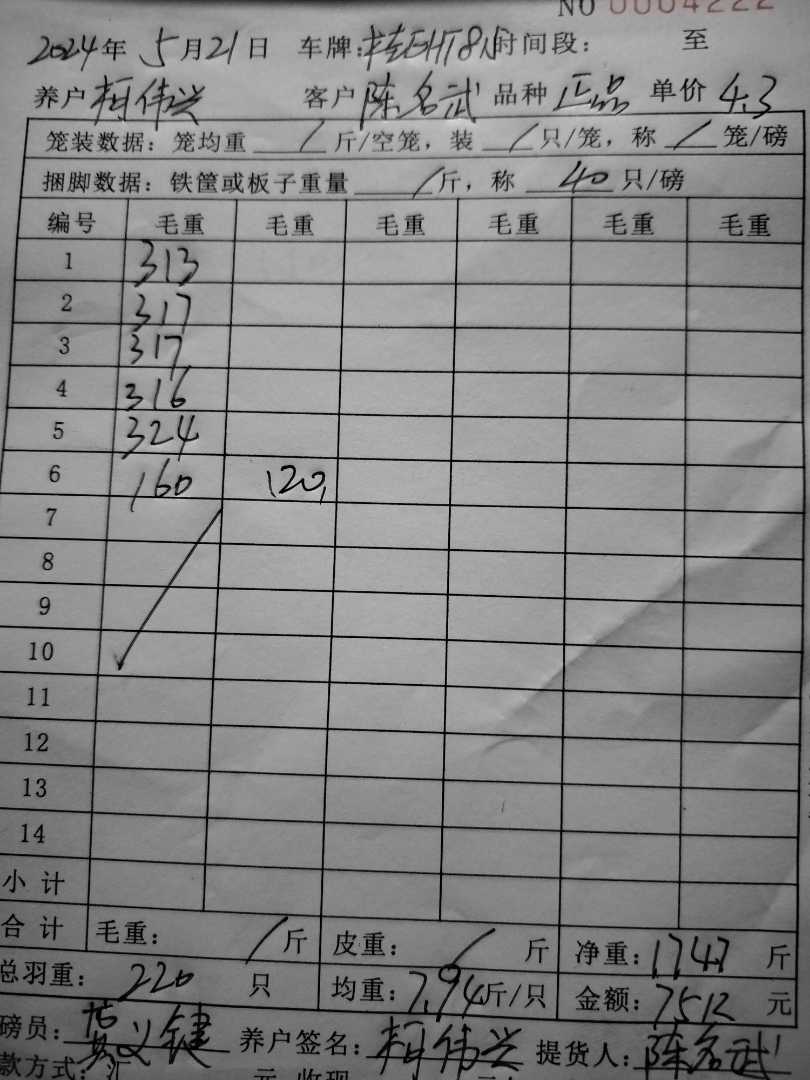 NO 0004222
2024年 5月21日 车牌:桂EHT8N 时间段: 至
养户 柯伟兴 客户 陈名武 品种 正品 单价 4.3
笼装数据:笼均重 / 斤/空笼,装 / 只/笼,称 / 笼/磅
捆脚数据:铁筐或板子重量 / 斤,称 40 只/磅
编号 毛重 毛重 毛重 毛重 毛重 毛重
1 313
2 317
3 317
4 316
5 324
6 160 120
7
8
9
10
11
12
13
14
小 计
合 计 毛重: / 斤 皮重: / 斤 净重:1747 斤
总羽重: 220 只 均重:7.94 斤/只 金额:7512 元
磅员: 义键 养户签名:柯伟兴 提货人:陈名武
款方式:汇 元 收现